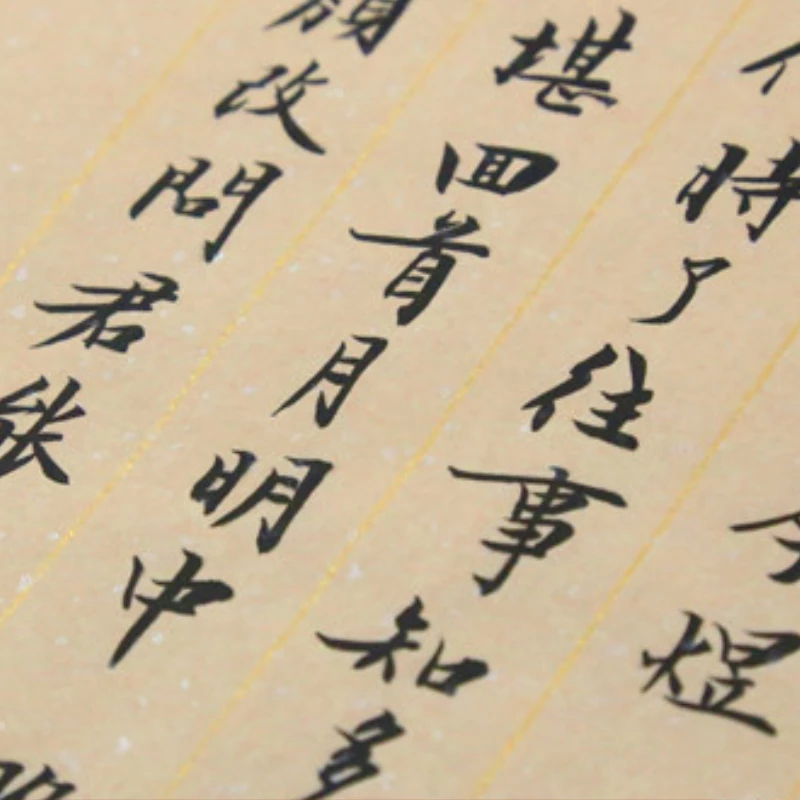 煜
時了往事知多
堪回首月明中
顏改問君能